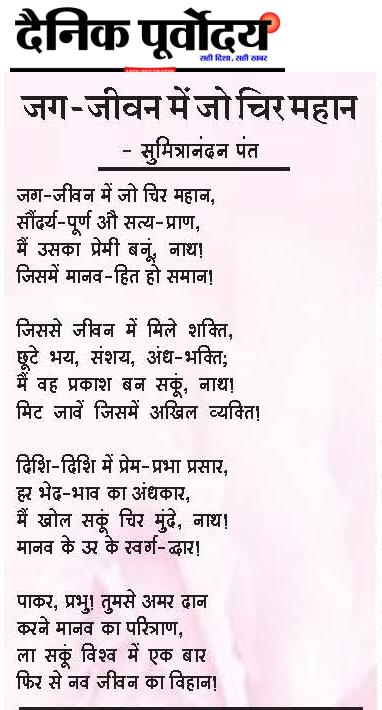 दैनिक पूर्वोदय
सही दिशा, सही खबर
जग-जीवन में जो चिर महान
- सुमित्रानंदन पंत
जग-जीवन में जो चिर महान,
सौंदर्य-पूर्ण औ सत्य-प्राण,
मैं उसका प्रेमी बनूं, नाथ!
जिसमें मानव-हित हो समान!
जिससे जीवन में मिले शक्ति,
छूटे भय, संशय, अंध-भक्ति;
मैं वह प्रकाश बन सकूं, नाथ!
मिट जावें जिसमें अखिल व्यक्ति!
दिशि-दिशि में प्रेम-प्रभा प्रसार,
हर भेद-भाव का अंधकार,
मैं खोल सकूं चिर मुंदे, नाथ!
मानव के उर के स्वर्ग-द्वार!
पाकर, प्रभु! तुमसे अमर दान
करने मानव का परित्राण,
ला सकूं विश्व में एक बार
फिर से नव जीवन का विहान!